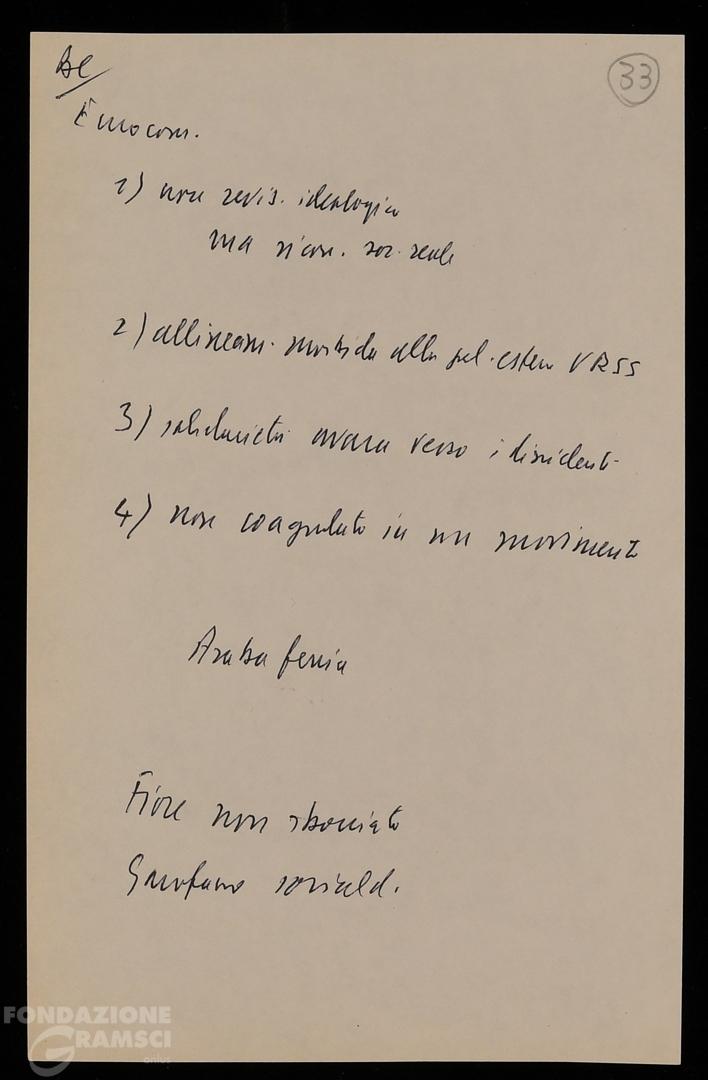 BC
33
Eurocom.
1) non revis. ideologica
ma ricon. soc. reale
2) allineam. morbido alla pol. estera URSS
3) solidarietà avara verso i dissidenti
4) non coagulato in un movimento
Araba fenice
Fiore non sbocciato
Garofano sociald.
FONDAZIONE
GRAMSCI
onlus